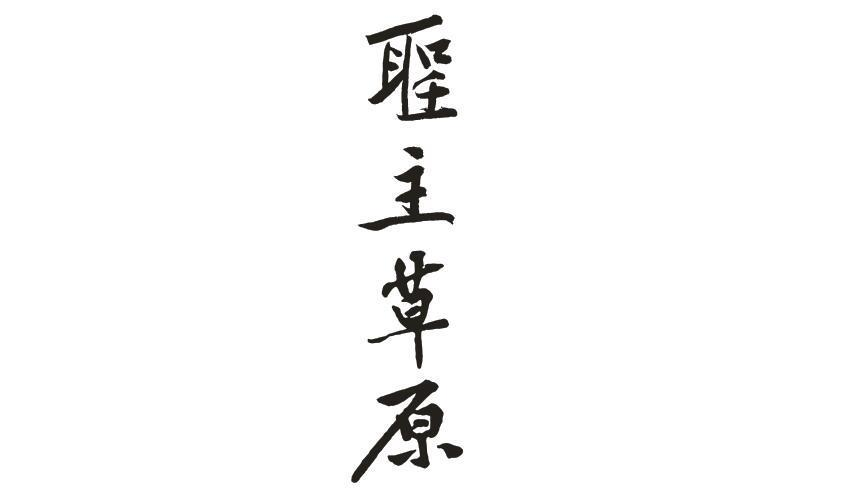 聖主草原